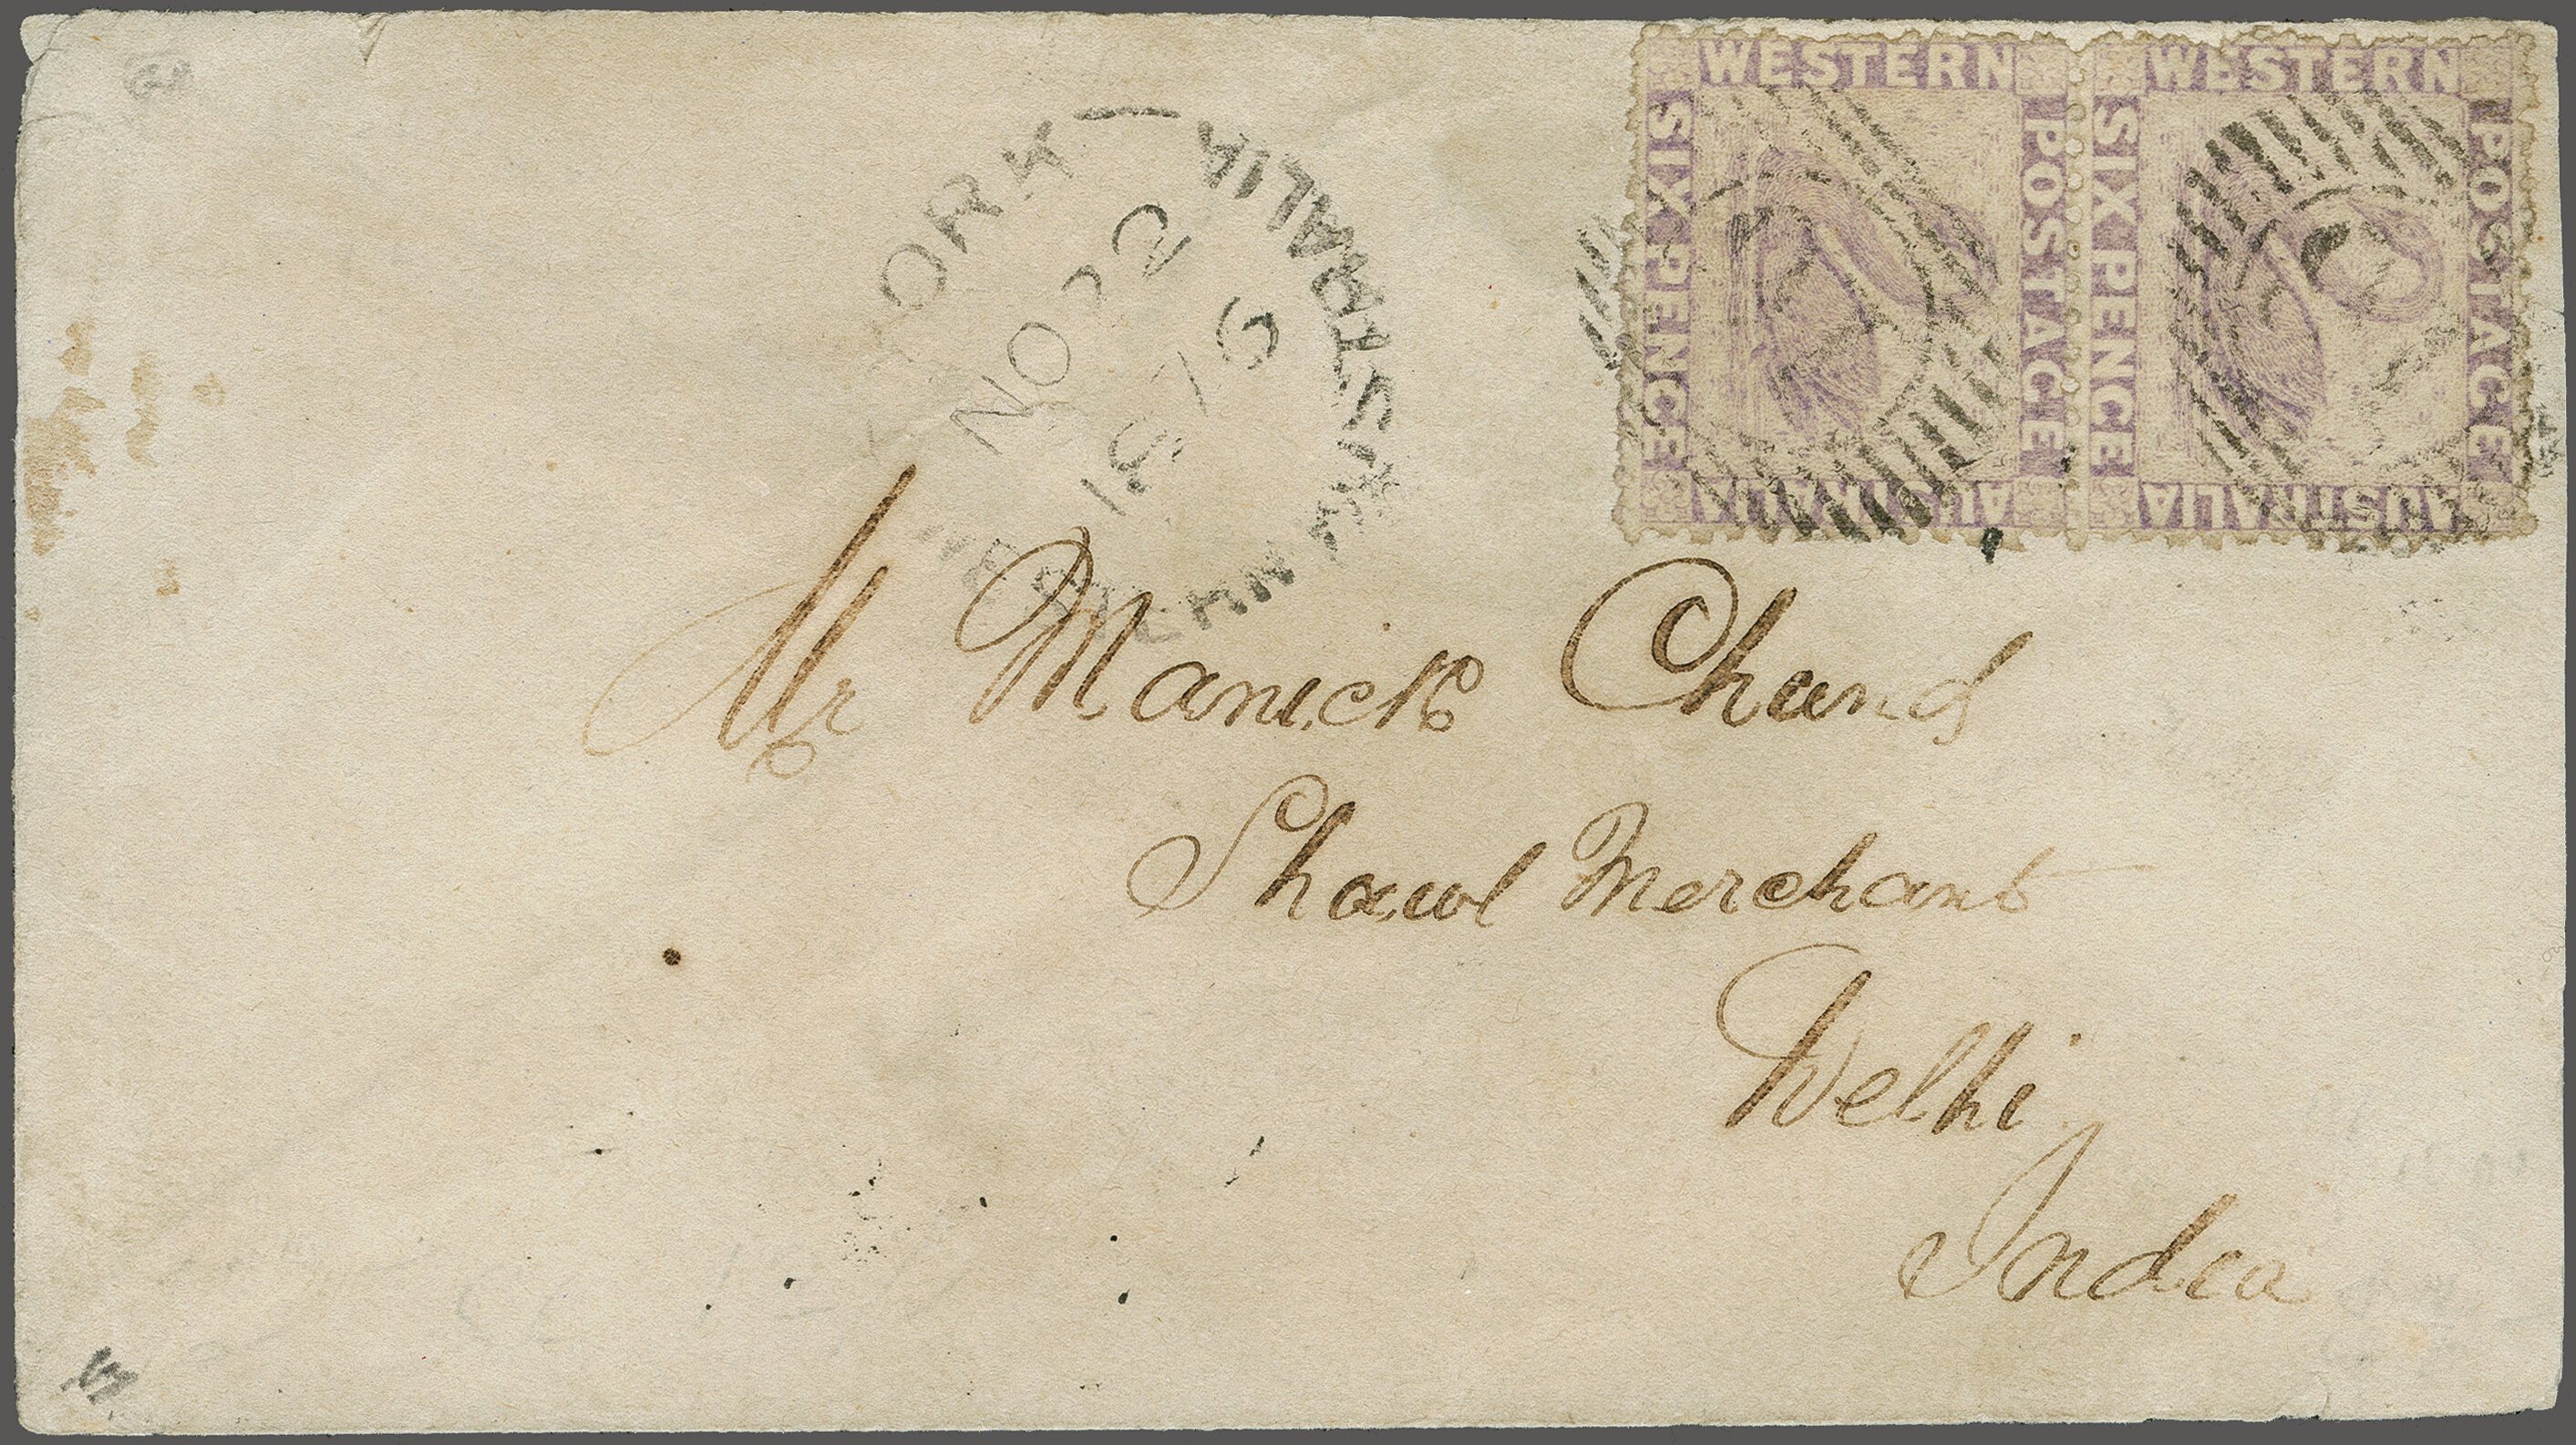 WESTERN WESTERN
SIX PENCE POSTAGE SIX PENCE POSTAGE
AUSTRALIA AUSTRALIA
YORK
WESTERN AUSTRALIA
NO 22
1876
Mr Manick Chund
Shawl Merchant
Delhi
India